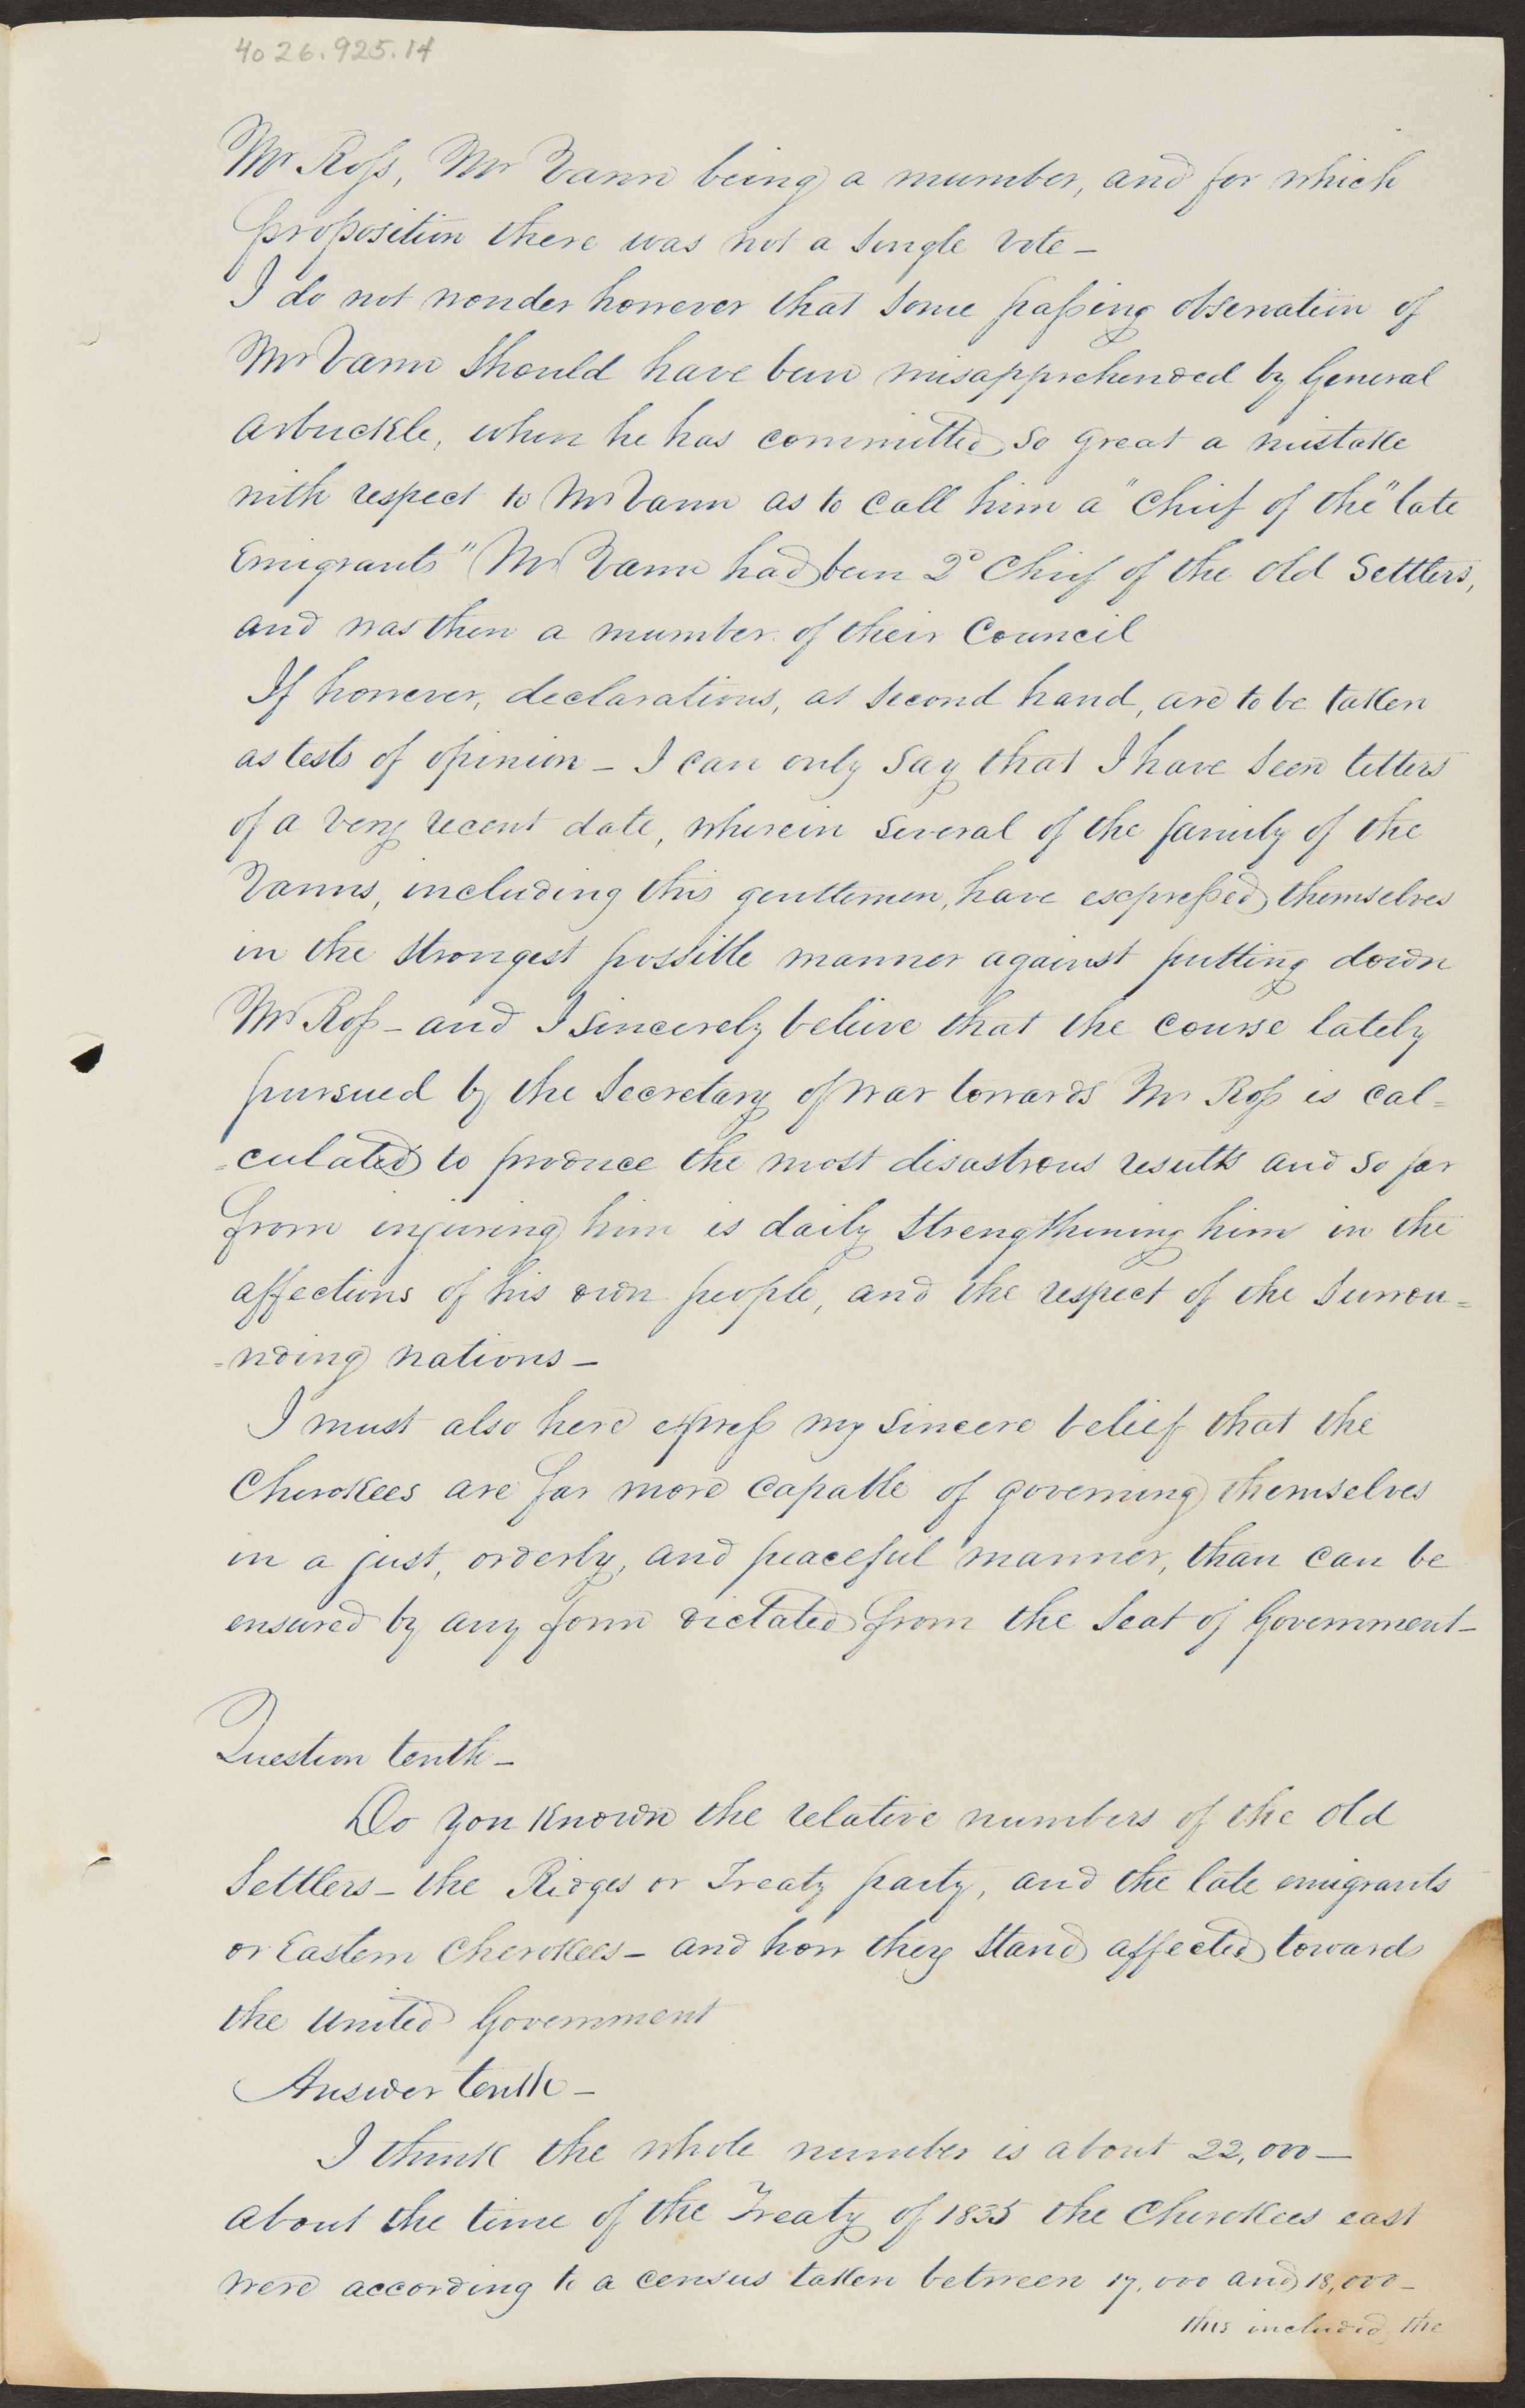 4026.925.14
Mr Ross, Mr Vann being a mumber, and for which
proposition there was not a single vote_
I do not wonder however that some passing observation of
Mr Vann should have been misapprehended by General
Arbuckle, when he has committed so great a mistake
with respect to Mr Vann as to call him a "Chief of the" late
Emigrants" Mr Vann had been 2d Chief of the old Settlers,
and was then a mumber of their Council
If however, declarations, at second hand, are to be taken
as tests of opinion_ I can only say that I have seen letters
of a very recent date, wherein several of the family of the
Vanns, including this gentlemen, have expressed themselves
in the strongest possible manner against putting down
Mr Ross_ and I sincerely believe that the course lately
pursued by the Secretary of war towards Mr Ross is cal=
=culated to produce the most disastrous results and so far
from injuring him is daily strengthening him in the
affections of his own people, and the respect of the surrou=
=nding nations_
I must also here express my sincere belief that the
Cherokees are far more capable of governing themselves
in a just, orderly, and peaceful manner, than can be
ensured by any form dictated from the Seat of Government_
Question tenth_
Do you known the relative numbers of the old
Settlers_ the Ridges or Treaty party, and the late emigrants
or Eastern Cherokees_ and how they stand affected towards
the United Government
Answer tenth_
I think the whole number is about 22,000_
about the time of the Treaty of 1835 the Cherokees east
were according to a census taken between 17,000 and 18,000_
this included the